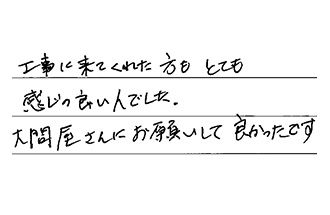 工事に来てくれた方も とても
感じの良い人でした。
大問屋さんにお願いして 良かったです